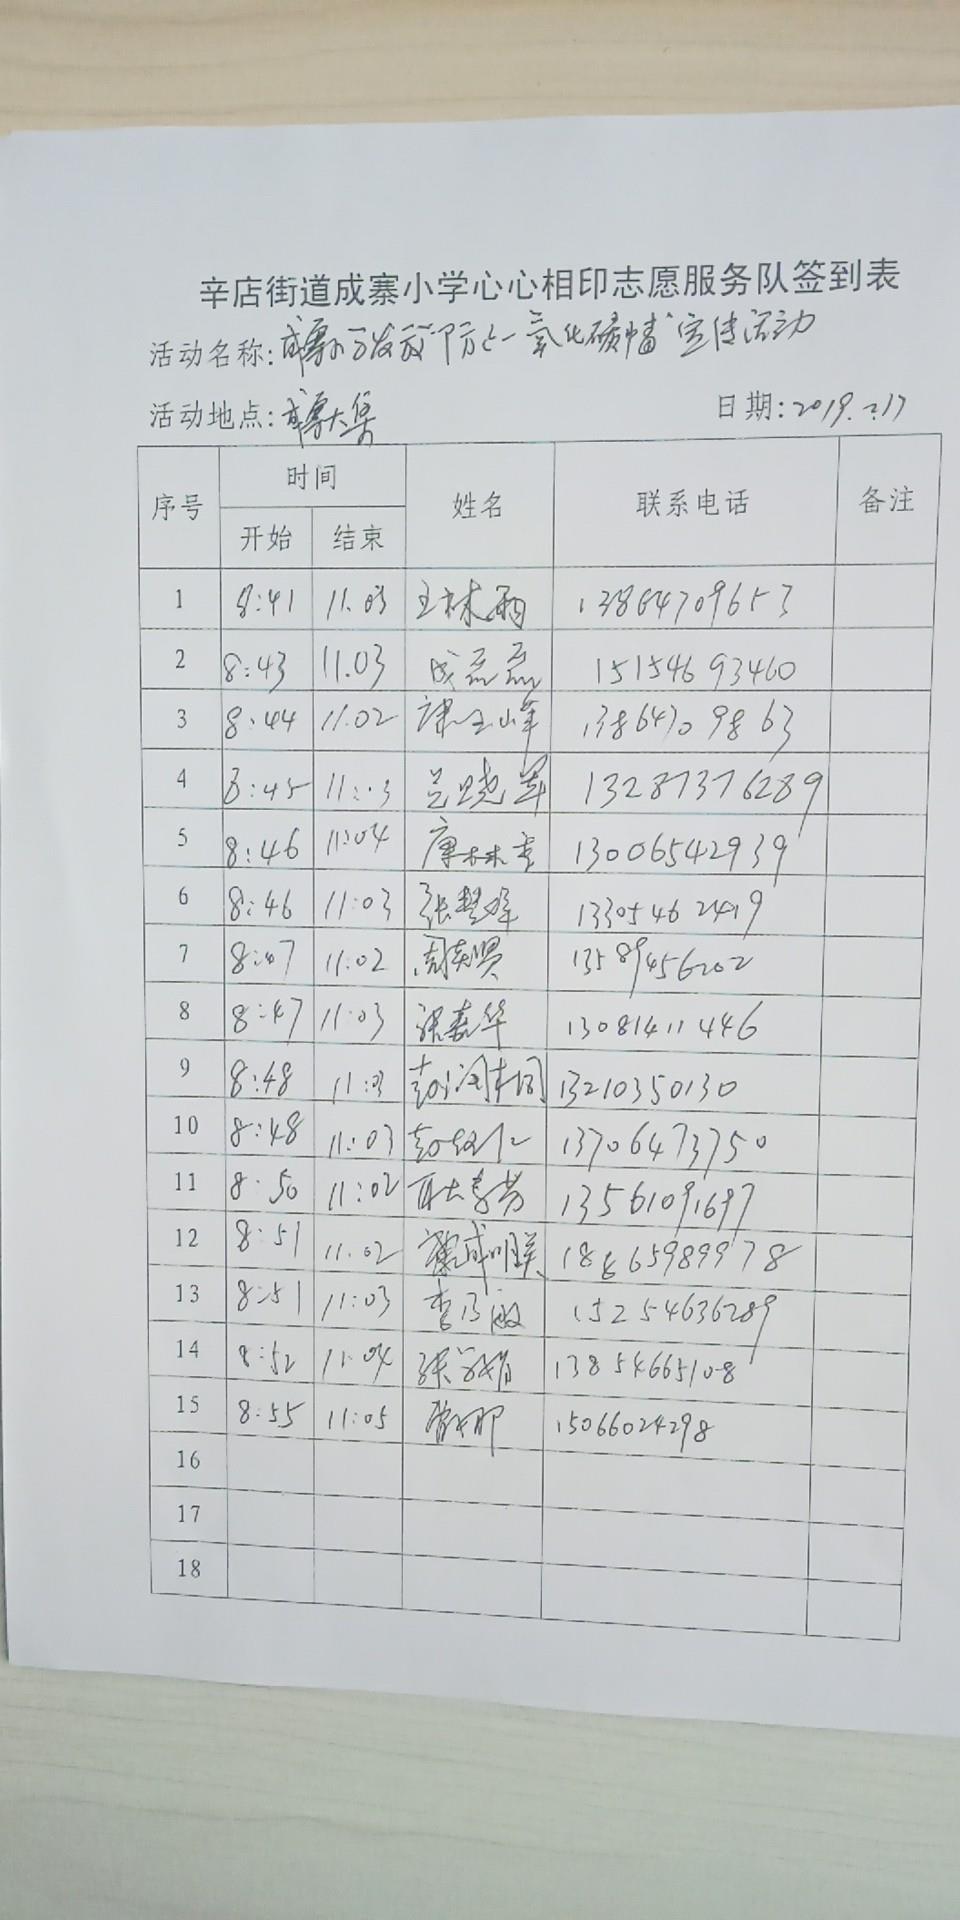 辛店街道成寨小学心心相印志愿服务队签到表
活动名称:成寨小学发放"防止一氧化碳中毒"宣传活动
活动地点:成寨大集 日期:2019.2.17
序号 时间 姓名 联系电话 备注
开始 结束
1 8:41 11:03 王林雨 13864709653
2 8:43 11.03 成磊磊 15154693460
3 8:44 11:02 13864709863
4 8:45 11:03 兰晓军 13287376289
5 8:46 11:04 13006542939
6 8:46 11:03 张楚峰 13305462419
7 8:47 11:02 周英贤 13589456202
8 8:47 11:03 张嘉华 13081411446
9 8:48 11:03 13210350130
10 8:48 11:03 13706473750
11 8:50 11:02 耿春芳 13561091697
12 8:51 11:02 18665989978
13 8:51 11:03 李乃敏 15254636289
14 8:52 11:04 13854665108
15 8:55 11:05 15066024298
16
17
18